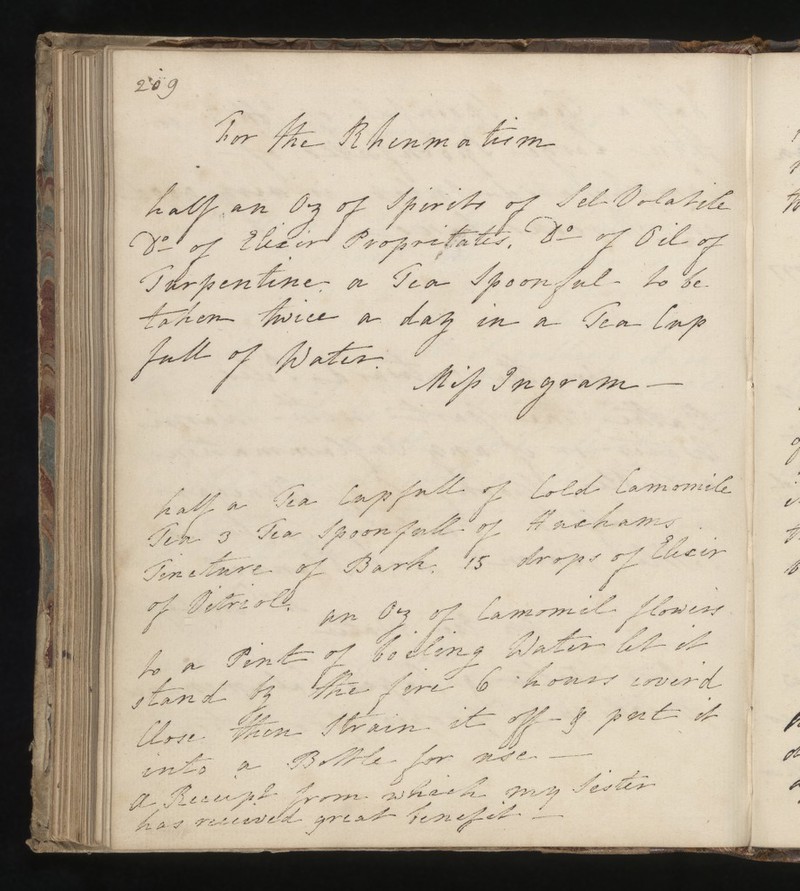 209
For the Rhenmatism
half an Oz of Spirits of Sel Volatile
Do of Elixir Propritatis, Do of Oil of
Turpentine a Tea Spoonful to be
taken twice a day in a Tea Cup
full of Water.
Miss Ingram —
half a Tea Cupfull of Cold Camomile
Tea 3 Tea Spoonfull of Huxhams
Tincture of Bark. 15 drops of Elixir
of Vitriol.
an Oz of Camomil flowers
to a Pint of boiling Water let it
stand by the fire 6 hours cover'd
Close then Strain it off & put it
into a Bottle for use —
A Receipt from which my Sister
has received great benefit —